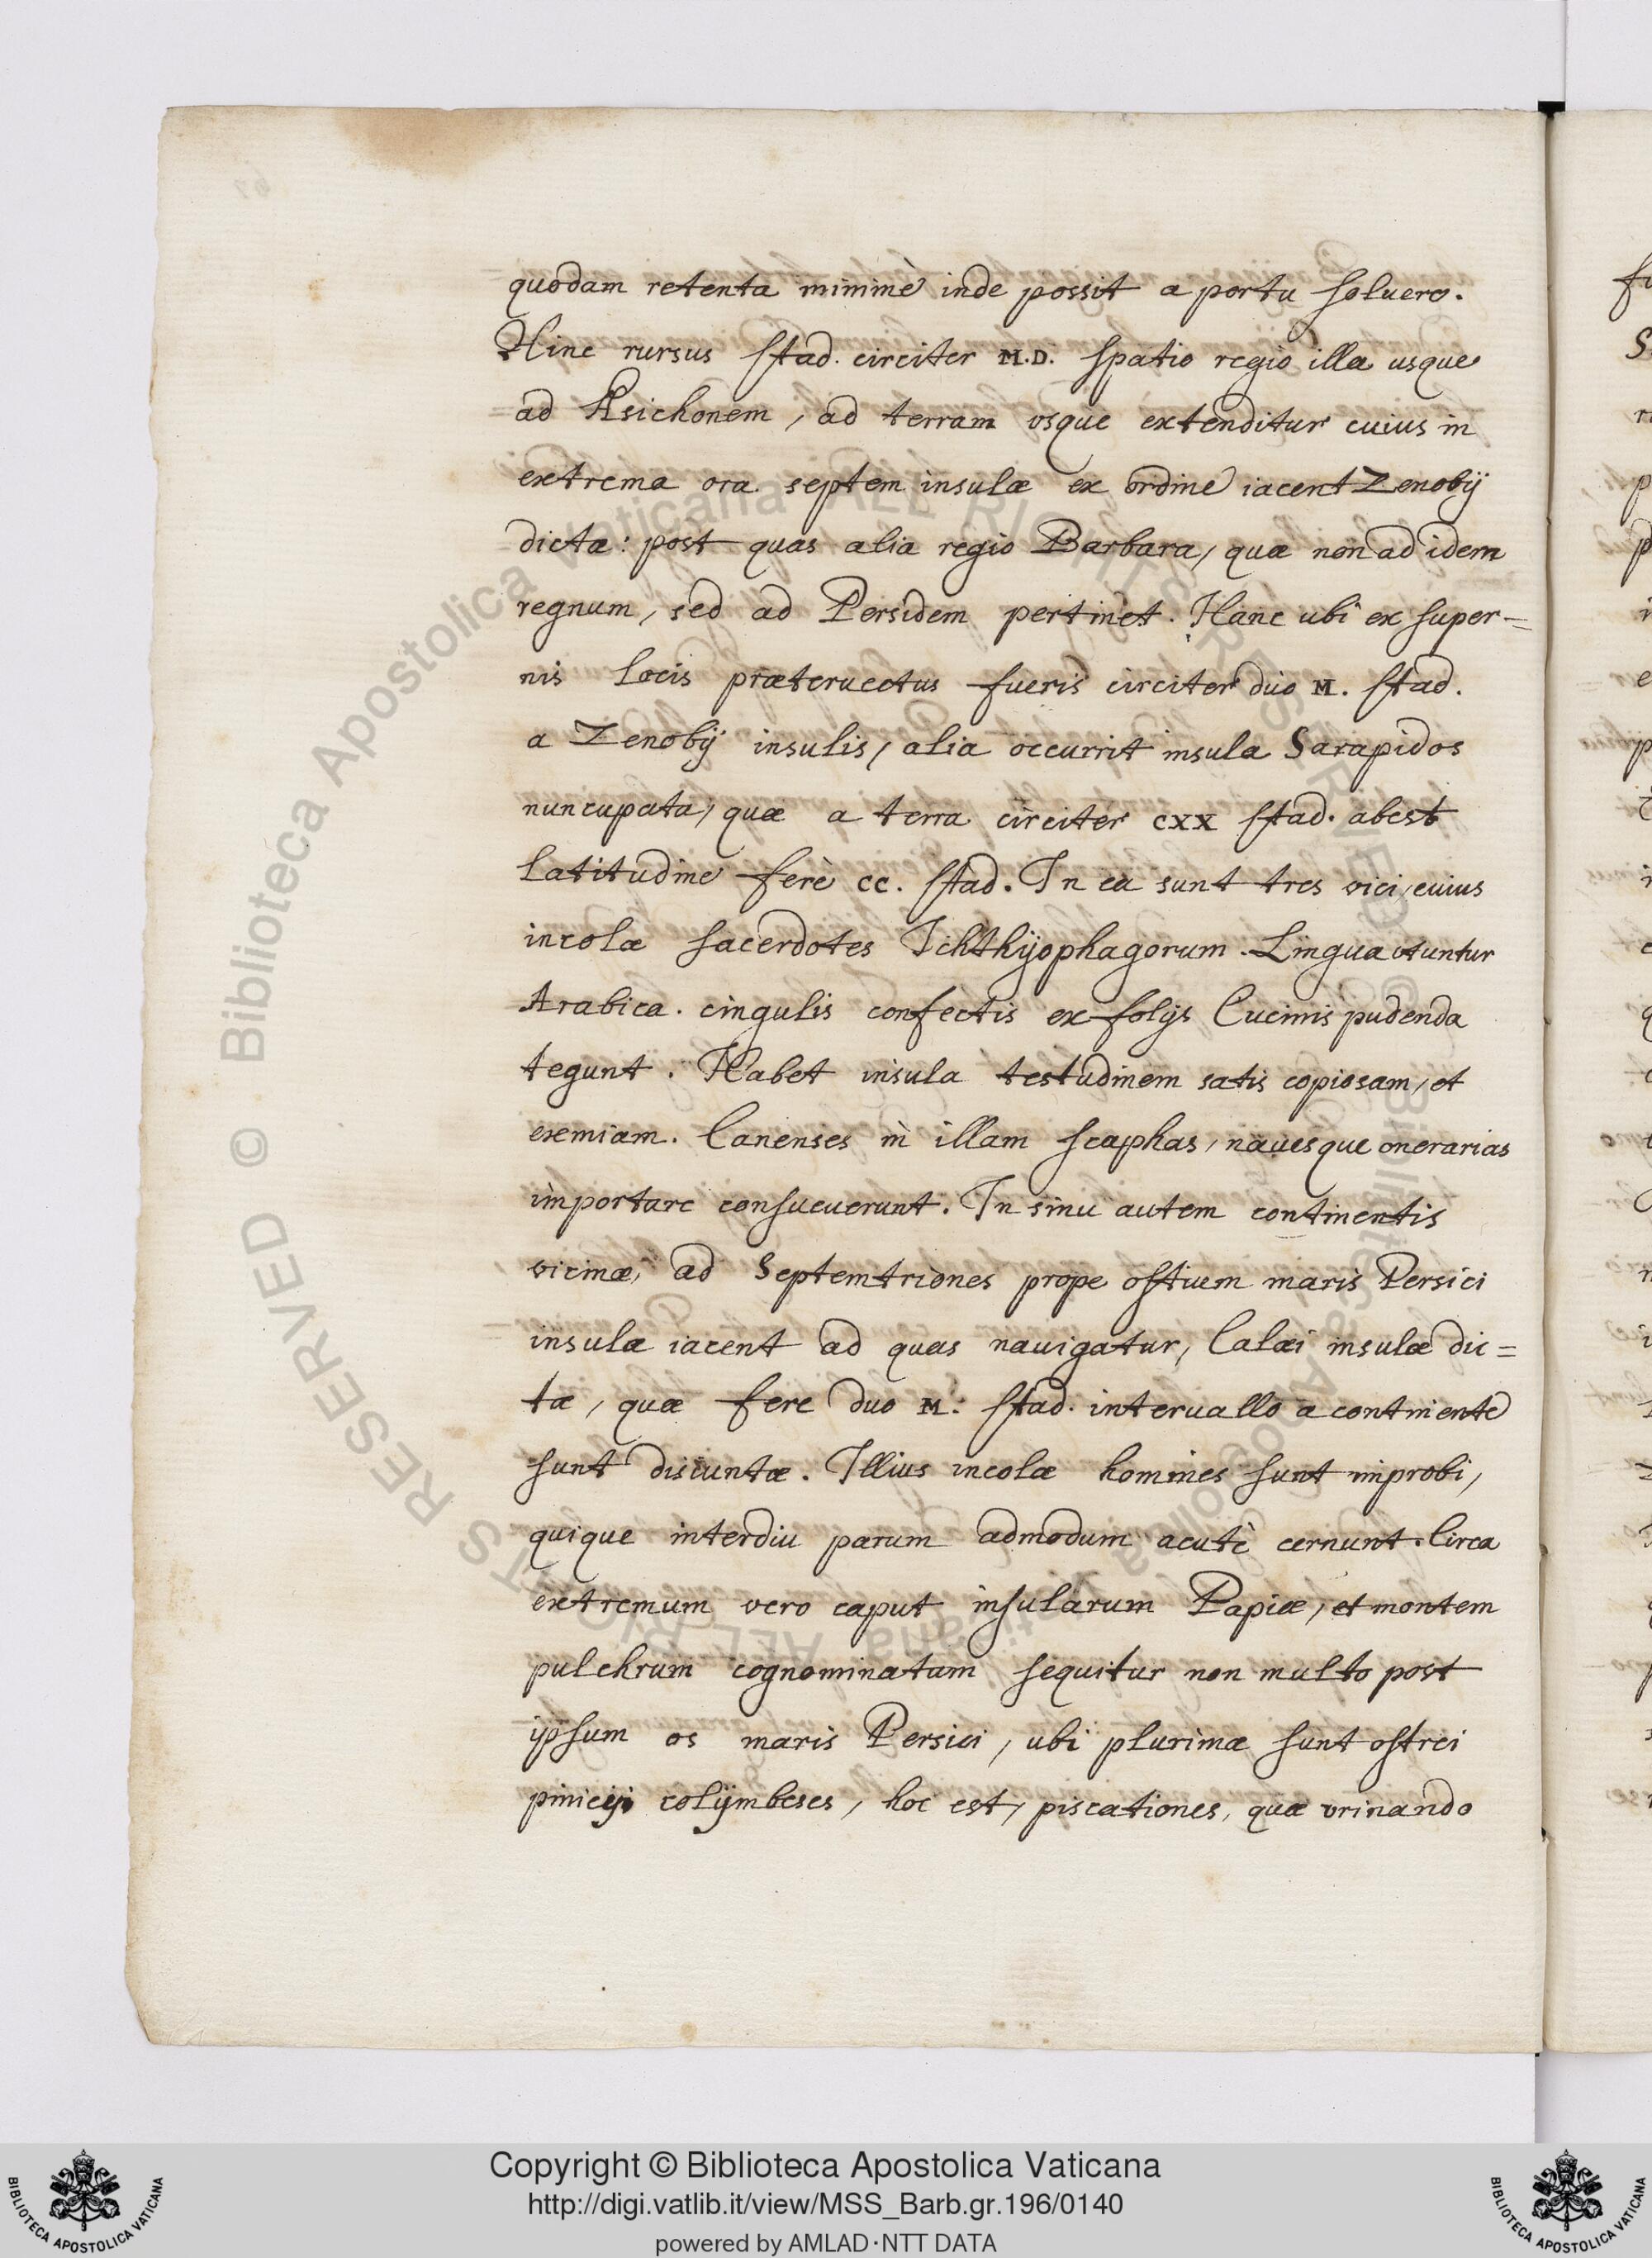 quodam retenta minimè inde possit a portu soluere.
Hinc rursus stad. circiter M.D. spatio regio illa usque
ad Asichonem, ad terram vsque extenditur cuius in
extrema ora septem insulæ ex ordine iacent Zenobij
dictæ: post quas alia regio Barbara, quæ non ad idem
regnum, sed ad Persidem pertinet. Hanc ubi ex super=
nis locis præteruectus fueris circiter duo M. stad.
a Zenobij insulis, alia occurrit insula Sarapidos
nuncupata, quæ a terra circiter CXX stad. abest
latitudine ferè CC. stad. In ea sunt tres vici, cuius
incolæ sacerdotes Ichthyophagorum. Lingua vtuntur
Arabica. cingulis confectis ex folijs Cucinis pudenda
tegunt. Habet insula testudinem satis copiosam, et
exemiam. Canenses in illam scaphas, nauesque onerarias
importare consueuerunt. In sinu autem continentis
vicinæ, ad Septemtriones prope ostium maris Persici
insulæ iacent ad quas nauigatur, Calæi insulæ dic=
tæ, quæ fere duo M. stad. interuallo a continente
sunt disiuntæ. Illius incolæ homines sunt improbi,
quique interdiu parum admodum acutè cernunt. Circa
extremum vero caput insularum Papiæ, et montem
pulchrum cognominatum sequitur non multo post
ipsum os maris Persici, ubi plurimæ sunt ostrei
pinicij colymbeses, hoc est, piscationes, quæ vrinando
© Biblioteca Apostolica Vaticana ALL RIGHTS RESERVED
Copyright © Biblioteca Apostolica Vaticana
http://digi.vatlib.it/view/MSS_Barb.gr.196/0140
powered by AMLAD·NTT DATA
BIBLIOTECA APOSTOLICA VATICANA
BIBLIOTECA APOSTOLICA VATICANA